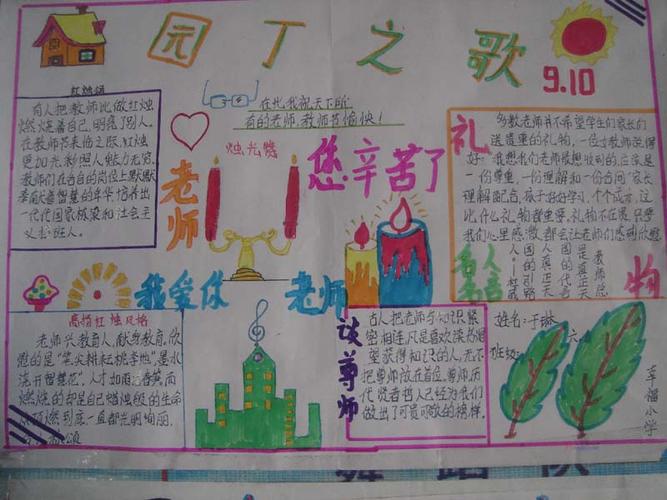 园丁之歌
9.10
红烛颂
有人把教师比做红烛
燃烧着自己,明亮了别人。
在教师节来临之际,红烛
更加光彩照人魅力无穷。
教师们在各自的岗位上默默
奉献着智慧的年华,培养出
一代代国家栋梁和社会主
义接班人。
在此我祝天下所
有的老师,教师节愉快!
烛光赞
老师
您辛苦了
我爱你
老师
礼
物
多数老师并不希望学生们家长们
送贵重的礼物,一位老师说得
好:我想我们老师最想收到的,应该是
一份尊重,一份理解和一份合同。家长
理解配合,孩子好好学习,个个成才,这
比什么礼物都重要。礼物不在贵,只要
我们心里感激,都会让老师们感到欣慰
名人
名言
高捎红烛风格
老师兴教育人,献身教育,欣
慰的是“笔尖耕耘桃李地,墨水
浇开智慧花”,人才如雨后春笋而
燃烧的却是自己蜡烛般的生命
从顶燃到底一直都光明绚丽。
谈尊师
古人把老师与知识紧
密相连,凡是喜欢读书渴
望获得知识的人,无不
把尊师放在首位。尊师,历
代贤者哲人已经为我们
做出了可贵可敬的榜样。
姓名:于琳
班级:六
车福小学